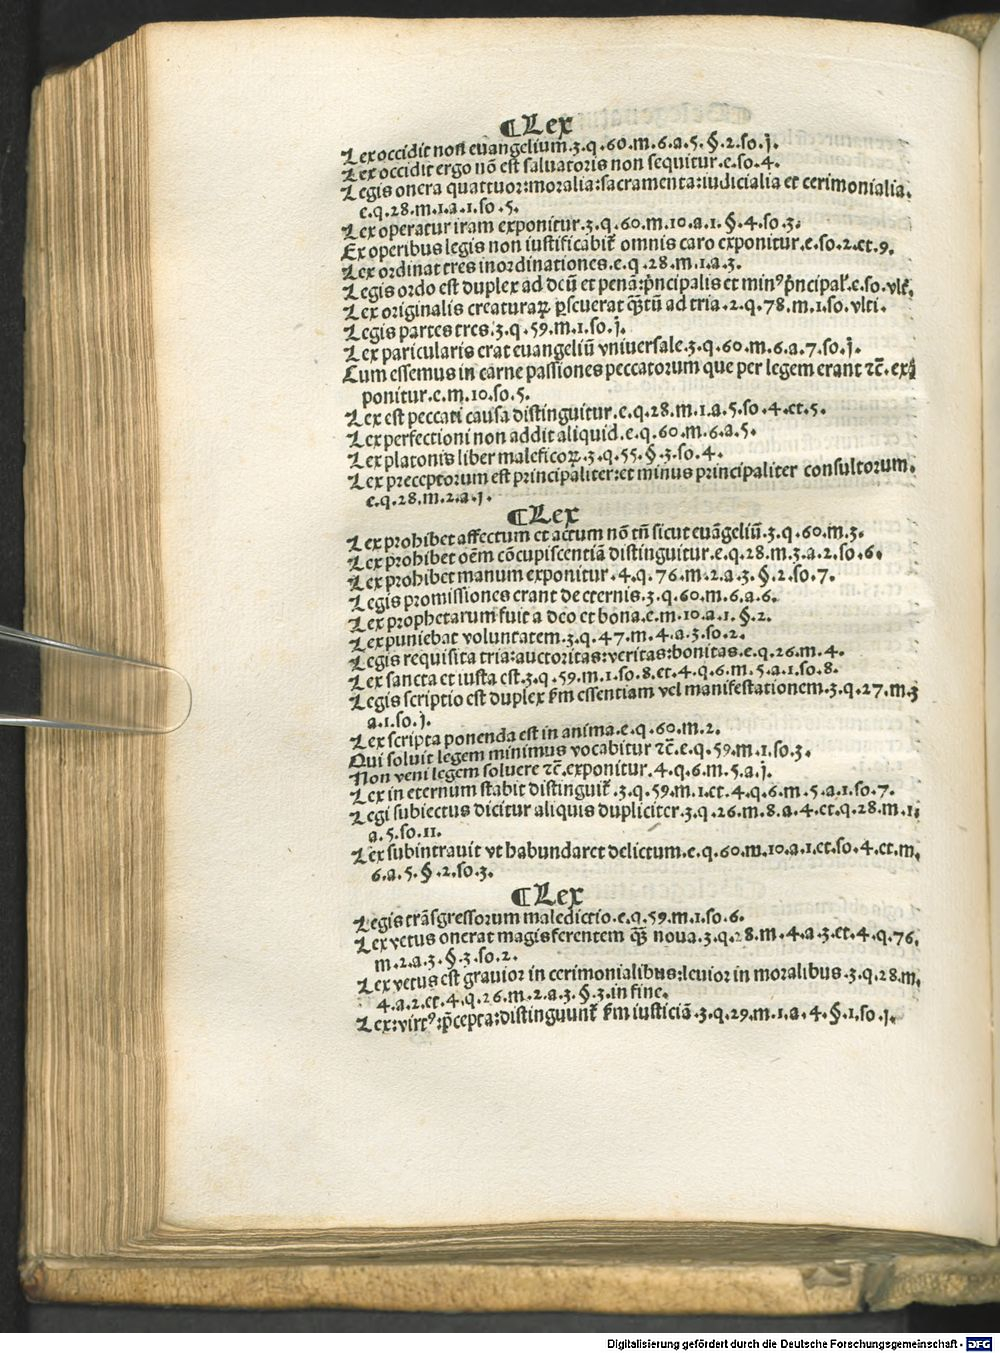 ¶Lex
Lex occidit non euangelium.3.q.60.m.6.a.5.§.2.so.j.
Lex occidit ergo nō est saluatoris non sequitur.e.so.4.
Legis onera quattuor:moralia:sacramenta:iudicialia et cerimonialia.
e.q.28.m.1.a.1.so.5.
Lex operatur iram exponitur.3.q.60.m.10.a.1.§.4.so.3.
Ex operibus legis non iustificabit᷑ omnis caro exponitur.e.so.2.et.9.
Lex ordinat tres inordinationes.e.q.28.m.1.a.3.
Legis ordo est duplex ad deū et penā:p̄ncipalis et minꝰ p̄ncipal᷑.e.so.vlt᷑.
Lex originalis creaturaꝝ ꝑseuerat qȝtū ad tria.2.q.78.m.1.so.vlti.
Legis partes tres.3.q.59.m.1.so.j.
Lex paricularis erat euangeliū vniuersale.3.q.60.m.6.a.7.so.j.
Cum essemus in carne passiones peccatorum que per legem erant ⁊c̄.ex
ponitur.e.m.10.so.5.
Lex est peccati causa distinguitur.e.q.28.m.1.a.5.so.4.et.5.
Lex perfectioni non addit aliquid.e.q.60.m.6.a.5.
Lex platonis liber maleficoꝝ.3.q.55.§.3.so.4.
Lex preceptorum est principaliter:et minus principaliter consultorum.
e.q.28.m.2.a.j.
¶Lex
Lex prohibet affectum et actum nō tn̄ sicut euāgeliū.3.q.60.m.3.
Lex prohibet oēm cōcupiscentiā distinguitur.e.q.28.m.3.a.2.so.6.
Lex prohibet manum exponitur.4.q.76.m.2.a.3.§.2.so.7.
Legis promissiones erant de eternis.3.q.60.m.6.a.6.
Lex prophetarum fuit a deo et bona.e.m.10.a.1.§.2.
Lex puniebat voluntatem.3.q.47.m.4.a.3.so.2.
Legis requisita tria:auctoritas:veritas:bonitas.e.q.26.m.4.
Lex sancta et iusta est.3.q.59.m.1.so.8.et.4.q.6.m.5.a.1.so.8.
Legis scriptio est duplex ẜm essentiam vel manifestationem.3.q.27.m.3
a.1.so.j.
Lex scripta ponenda est in anima.e.q.60.m.2.
Qui soluit legem minimus vocabitur ⁊c̄.e.q.59.m.1.so.3.
Non veni legem soluere ⁊c̄.exponitur.4.q.6.m.5.a.j.
Lex in eternum stabit distinguit᷑.3.q.59.m.1.et.4.q.6.m.5.a.1.so.7.
Legi subiectus dicitur aliquis dupliciter.3.q.26.m.8.a.4.et.q.28.m.1.
a.5.so.11.
Lex subintrauit vt habundaret delictum.e.q.60.m.10.a.1.et.so.4.et.m.
6.a.5.§.2.so.3.
¶Lex
Legis trāsgressorum maledictio.e.q.59.m.1.so.6.
Lex vetus onerat magis ferentem qȝ noua.3.q.28.m.4.a.3.et.4.q.76.
m.2.a.3.§.3.so.2.
Lex vetus est grauior in cerimonialibus:leuior in moralibus.3.q.28.m.
4.a.2.et.4.q.26.m.2.a.3.§.3.in fine.
Lex:virtꝰ:p̄cepta:distinguunt᷑ ẜm iusticiā.3.q.29.m.1.a.4.§.1.so.j.
Digitalisierung gefördert durch die Deutsche Forschungsgemeinschaft - DFG